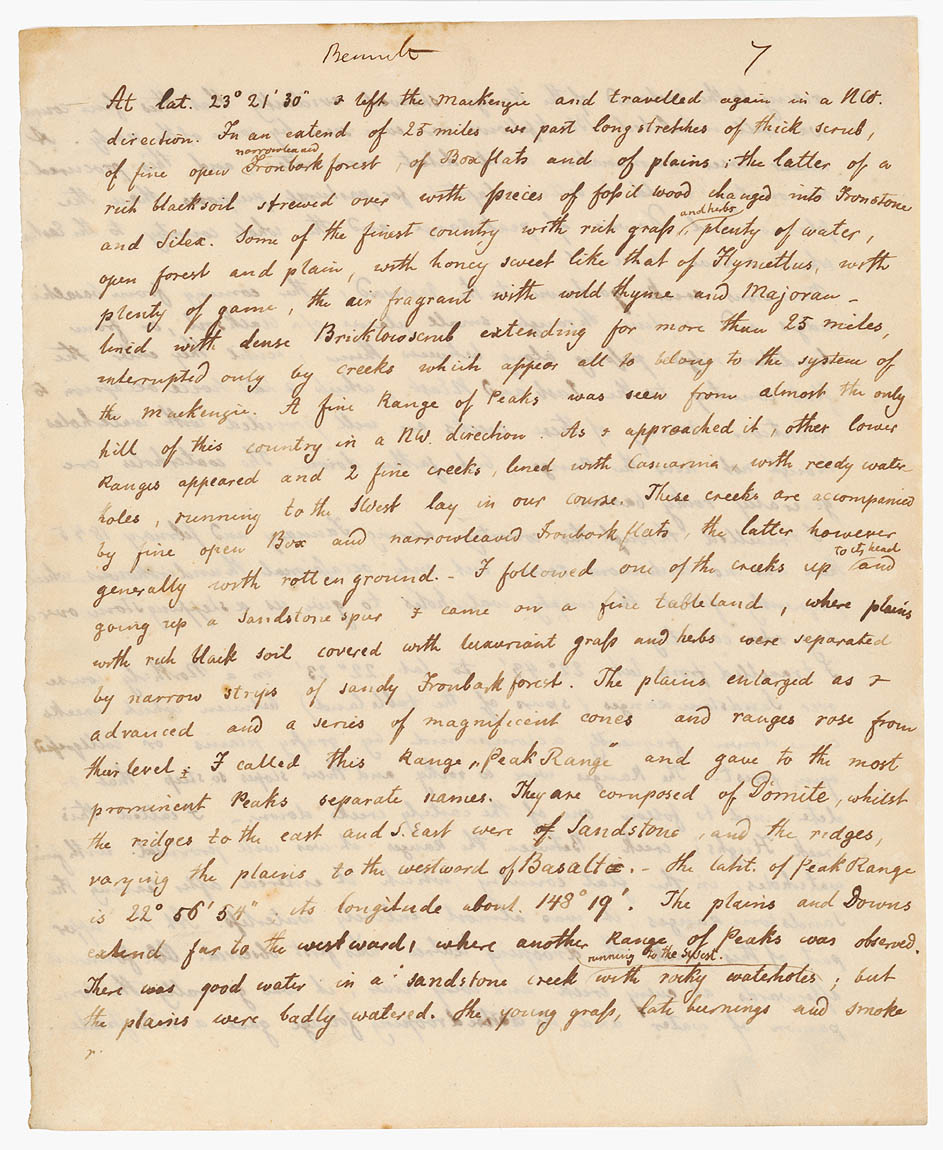 Bennett 7
At lat. 23° 21' 30" I left the Mackenzie and travelled again in a NW.
direction. In an extend of 25 miles we past long stretches of thick scrub,
narrowleaved
of fine open Ironbark forest, of Box flats and of plains; the latter of a
rich blacksoil strewed over with pieces of foſsil wood changed into Ironstone
and herbs
and Silex. Some of the finest country with rich graſs, plenty of water,
open forest and plain, with honey sweet like that of Hymettus, with
plenty of game, the air fragrant with wild thyme and Majoran –
lined with dense Bricklowscrub extending for more than 25 miles,
interrupted only by creeks which appear all to belong to the system of
the Mackenzie. A fine Range of Peaks was seen from almost the only
hill of this country in a NW. direction. As I approached it, other lower
Ranges appeared and 2 fine creeks, lined with Casuarina, with reedy water-
holes, running to the SWest lay in our course. These creeks are accompanied
by fine open Box and narrowleaved Ironbark flats, the latter however
to its head
generally with rotten ground. – I followed one of the creeks up and
going up a Sandstone spur I came on a fine tableland, where plains
with rich black soil covered with luxuriant graſs and herbs were separated
by narrow strips of sandy Ironbark forest. The plains enlarged as I
advanced and a series of magnificent cones and ranges rose from
their level; I called this Range „Peak Range" and gave to the most
prominent Peaks separate names. They are composed of Domite, whilst
the ridges to the east and S. East were of Sandstone, and the ridges,
varying the plains to the westward of Basalt. – the latit. of Peak Range
is 22° 56' 54" its longitude about 148° 19'. The plains and Downs
extend far to the westward, where another Range of Peaks was observed.
running to the SWest.
There was good water in a sandstone creek with rocky waterholes; but
the plains were badly watered. The young graſs, late burnings and smoke